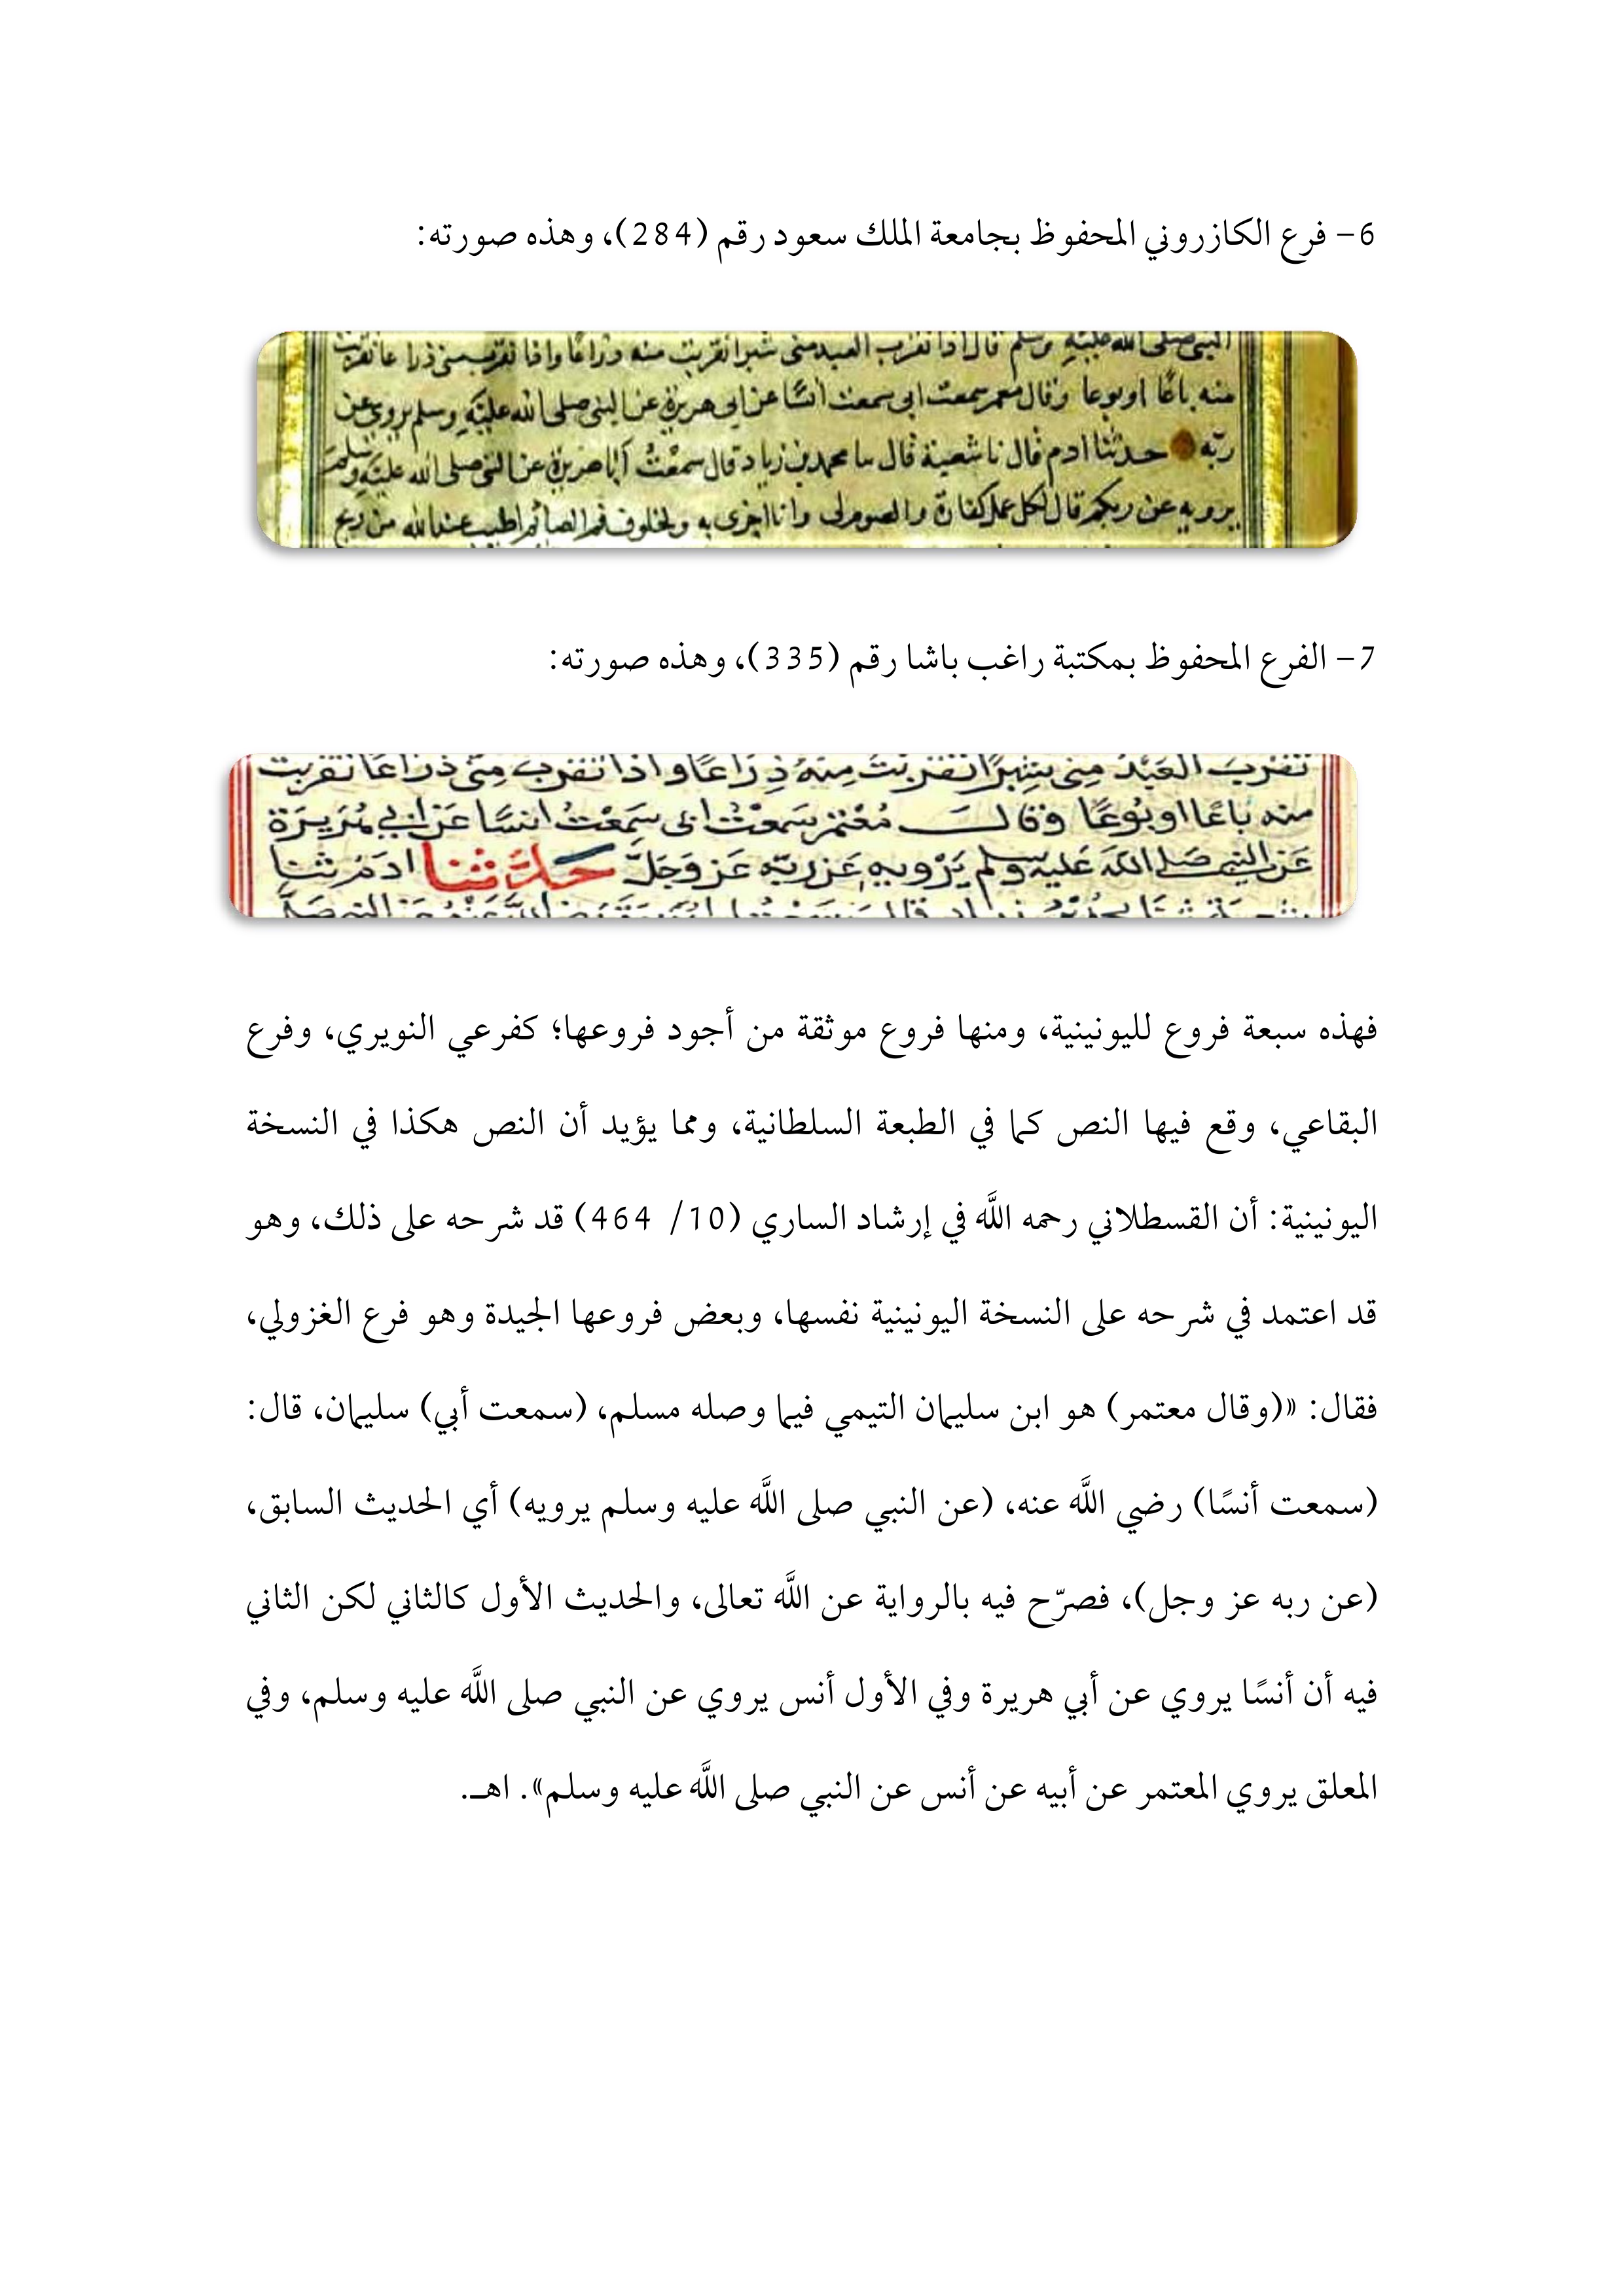 6- فرع الكازروني المحفوظ بجامعة الملك سعود رقم (284)، وهذه صورته:
النبي صلى الله عليه وسلم قال اذا تقرب العبد مني شبرا تقربت منه ذراعا واذا تقرب مني ذراعا تقربت
منه باعا او بوعا وقال معمر سمعت ابي سمعت انسا عن ابي هريرة عن النبي صلى الله عليه وسلم يروي عن
ربه حدثنا ادم قال نا شعبة قال نا محمد بن زياد قال سمعت أبا هريرة عن النبي صلى الله عليه وسلم
يرويه عن ربكم قال لكل عمل كفارة والصوم لي وانا اجزى به ولخلوف فم الصائم اطيب عند الله من ريح
7- الفرع المحفوظ بمكتبة راغب باشا رقم (335)، وهذه صورته:
تَقَرَّبَ العَبْدُ مِنى شِبرًا تَقَرَّبْتُ مِنهُ ذِرَاعًا وَاذا تَقَرَّبَ مِنّى ذرَاعًا تقربت
منه بَاعًا او بُوعًا وَقَالَ مُعْتَمِر سَمِعْتُ ابى سَمِعْتُ انسًا عَن ابي هُرَيرَة
عَن النبي صَلى اللهُ عَليه وسلم يَرْويهِ عَن ربّه عَز وَجَلّ حَدَّثنا ادَمُ ثنا
فهذه سبعة فروع لليونينية، ومنها فروع موثقة من أجود فروعها؛ كفرعي النويري، وفرع
البقاعي، وقع فيها النص كما في الطبعة السلطانية، ومما يؤيد أن النص هكذا في النسخة
اليونينية: أن القسطلاني رحمه اللَّه في إرشاد الساري (10/ 464) قد شرحه على ذلك، وهو
قد اعتمد في شرحه على النسخة اليونينية نفسها، وبعض فروعها الجيدة وهو فرع الغزولي،
فقال: «(وقال معتمر) هو ابن سليمان التيمي فيما وصله مسلم، (سمعت أبي) سليمان، قال:
(سمعت أنسًا) رضي اللَّه عنه، (عن النبي صلى اللَّه عليه وسلم يرويه) أي الحديث السابق،
(عن ربه عز وجل)، فصرّح فيه بالرواية عن اللَّه تعالى، والحديث الأول كالثاني لكن الثاني
فيه أن أنسًا يروي عن أبي هريرة وفي الأول أنس يروي عن النبي صلى اللَّه عليه وسلم، وفي
المعلق يروي المعتمر عن أبيه عن أنس عن النبي صلى اللَّه عليه وسلم». اهـ.